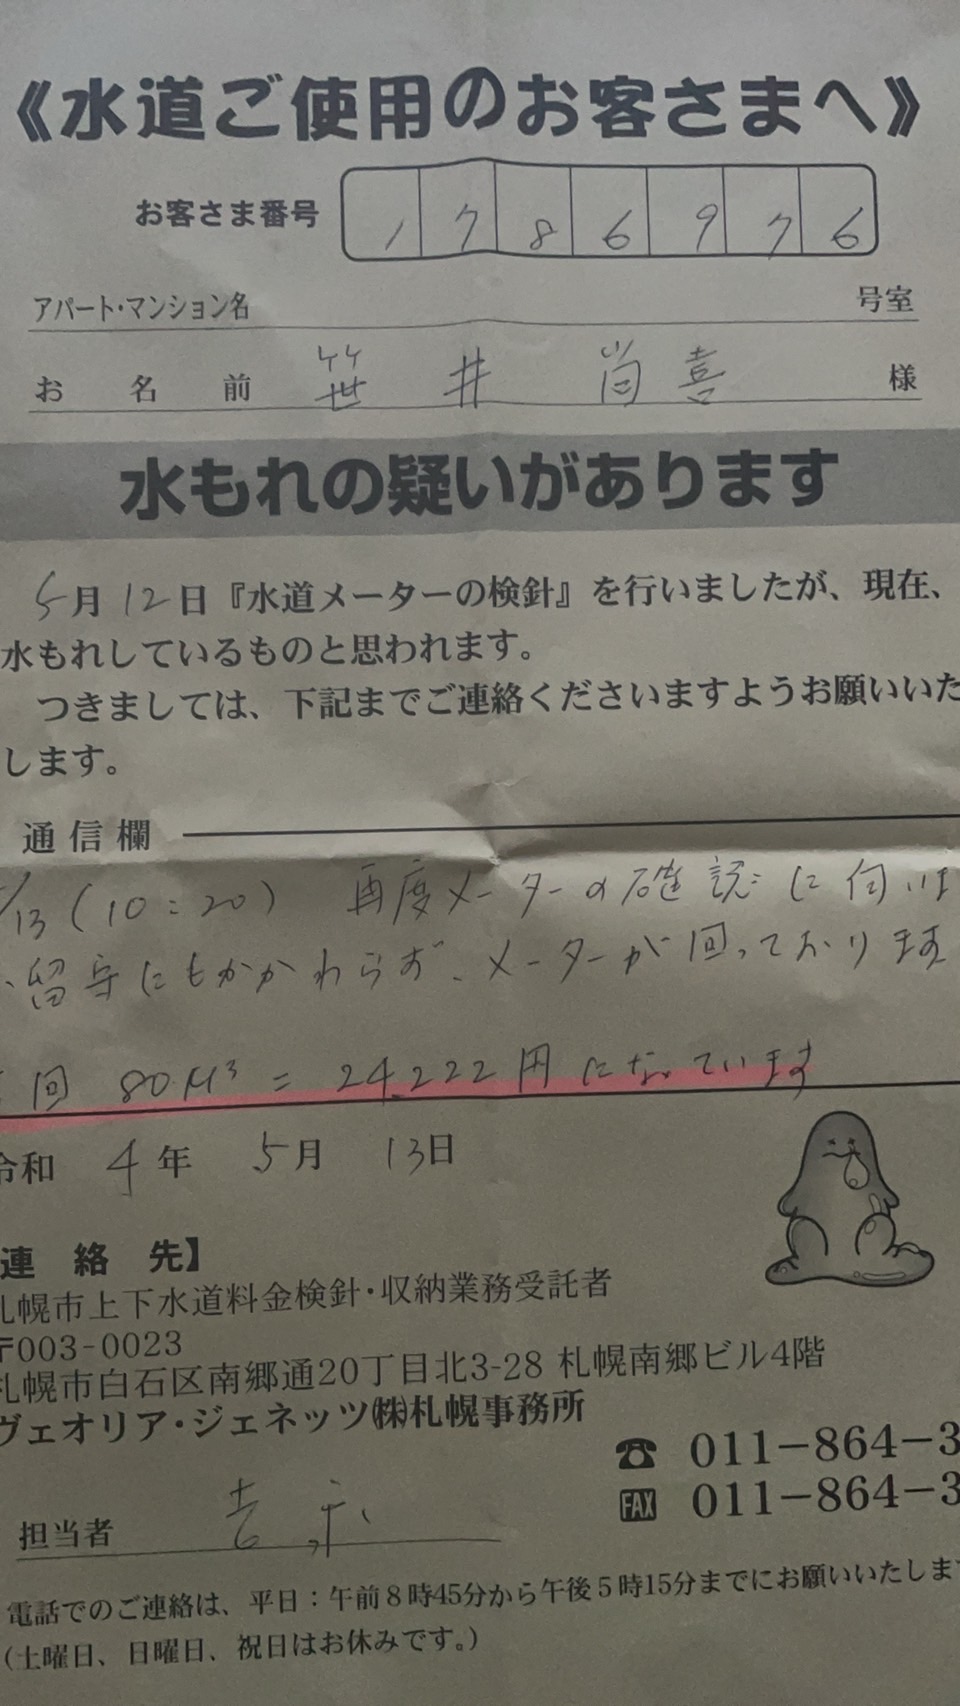 《水道ご使用のお客さまへ》
お客さま番号 1 7 8 6 9 7 6
アパート・マンション名 号室
お名前 笹井 尚喜 様
水もれの疑いがあります
5月12日『水道メーターの検針』を行いましたが、現在、
水もれしているものと思われます。
つきましては、下記までご連絡くださいますようお願いいた
します。
通信欄
/13(10:20) 再度メーターの確認に伺いま
留守にもかかわらず、メーターが回っております
回 80M³ = 24,222円になっています
令和 4年 5月 13日
連絡先】
札幌市上下水道料金検針・収納業務受託者
〒003-0023
札幌市白石区南郷通20丁目北3-28 札幌南郷ビル4階
ヴェオリア・ジェネッツ㈱札幌事務所
☎ 011-864-3
FAX 011-864-3
担当者
電話でのご連絡は、平日：午前8時45分から午後5時15分までにお願いいたしま
(土曜日、日曜日、祝日はお休みです。)